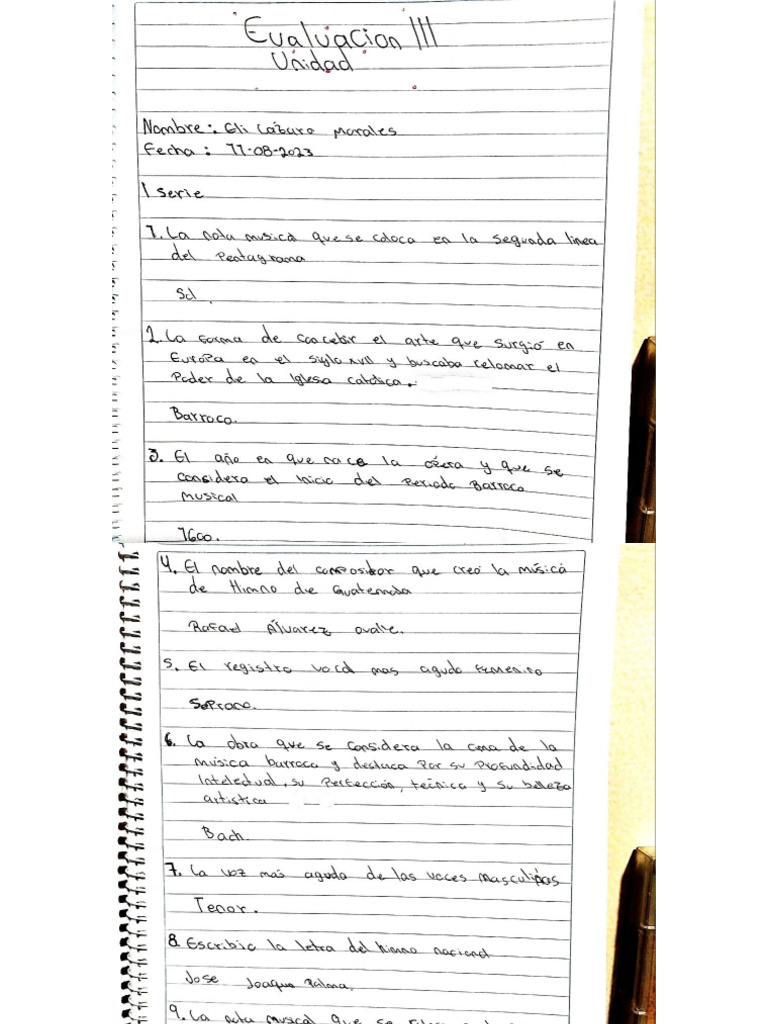 Evaluacion III
Unidad
Nombre: Eli Lázaro Morales
Fecha: 11-08-2023
I serie
1. La nota musica que se coloca en la segunda linea
del Pentagrama
Sol.
2. La forma de concebir el arte que surgió en
Europa en el siglo XVII y buscaba retomar el
Poder de la Iglesa católica.
Barroco.
3. El año en que nace la ópera y que se
considera el Inicio del Periodo Barroco
musical
1600.
4. El nombre del compositor que creó la músicá
de Himno de Guatemala
Rafael Álvarez Ovalle.
5. El registro vocal mas agudo Femenino
Soprano.
6. La obra que se considera la cima de la
música barroca y destaca Por su Profundidad
Intelectual, su Perfección, técnica y su belleza
artistica
Bach.
7. La voz más aguda de las voces masculinas
Tenor.
8. Escribio la letra del himno nacional
Jose Joaquin Palma.
9. La nota musical que se